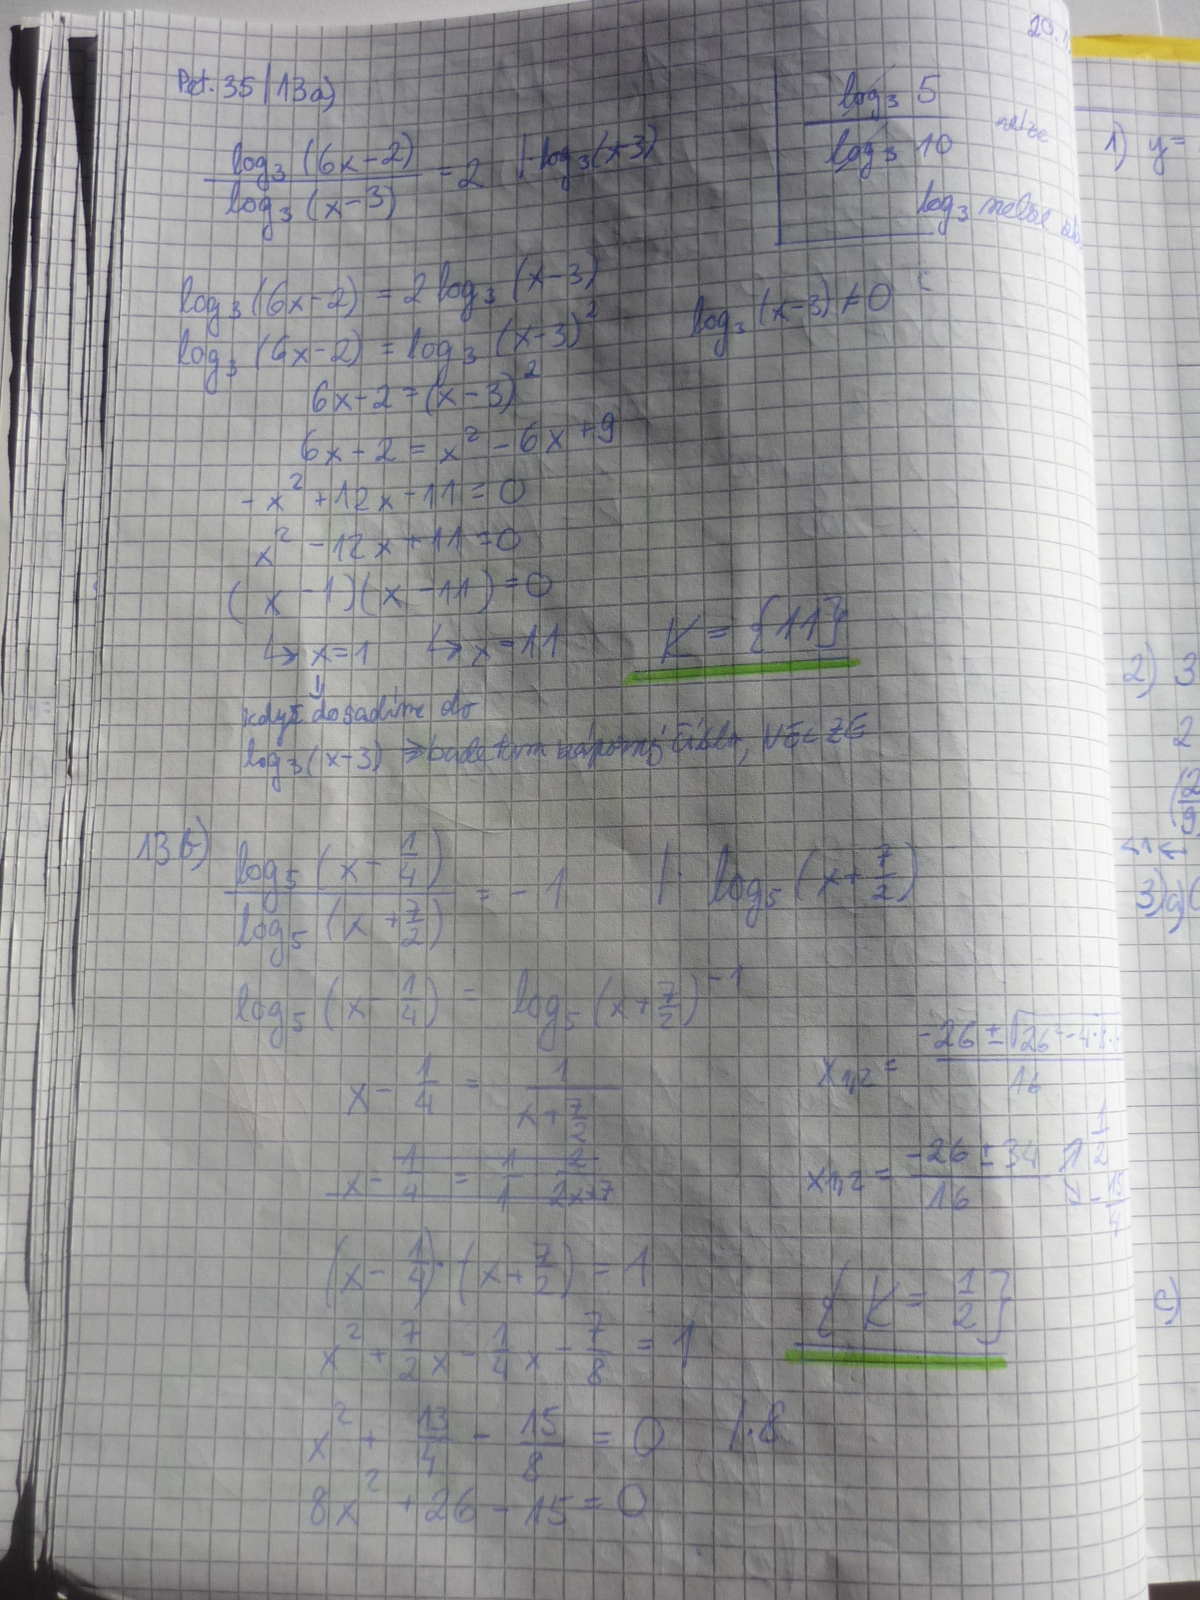 29.1
Pet. 35/13a)
log₃ (6x-2) / log₃ (x-3) = 2 |·log₃(x-3)
log₃ 5 / log₃ 10 nelze
log₃ nelze
log₃(6x-2) = 2 log₃ (x-3)
log₃ (x-3) ≠ 0
log₃ (6x-2) = log₃ (x-3)²
6x-2 = (x-3)²
6x-2 = x² - 6x + 9
-x² + 12x - 11 = 0
x² - 12x + 11 = 0
(x - 1)(x - 11) = 0
↳ x=1 ↳ x=11
K = {11}
↓
když dosadíme do
log₃(x-3) → bude tam záporný číslo, NELZE
13b) log₅ (x - 1/4) / log₅ (x + 7/2) = -1 |· log₅ (x + 7/2)
log₅ (x - 1/4) = log₅ (x + 7/2)⁻¹
x - 1/4 = 1 / (x + 7/2)
x - 1/4 = 1/1 2/2x+7
(x - 1/4) · (x + 7/2) = 1
x² + 7/2 x - 1/4 x - 7/8 = 1
x² + 13/4 - 15/8 = 0 /·8
8x² + 26 - 15 = 0
x₁,₂ = -26 ± √26² - 4·8· / 16
x₁,₂ = -26 ± 34 / 16 ↗ 1/2 ↘ -15/4
{K = 1/2}
1) y =
2) 3
2
(2/9
3) a) (
c)